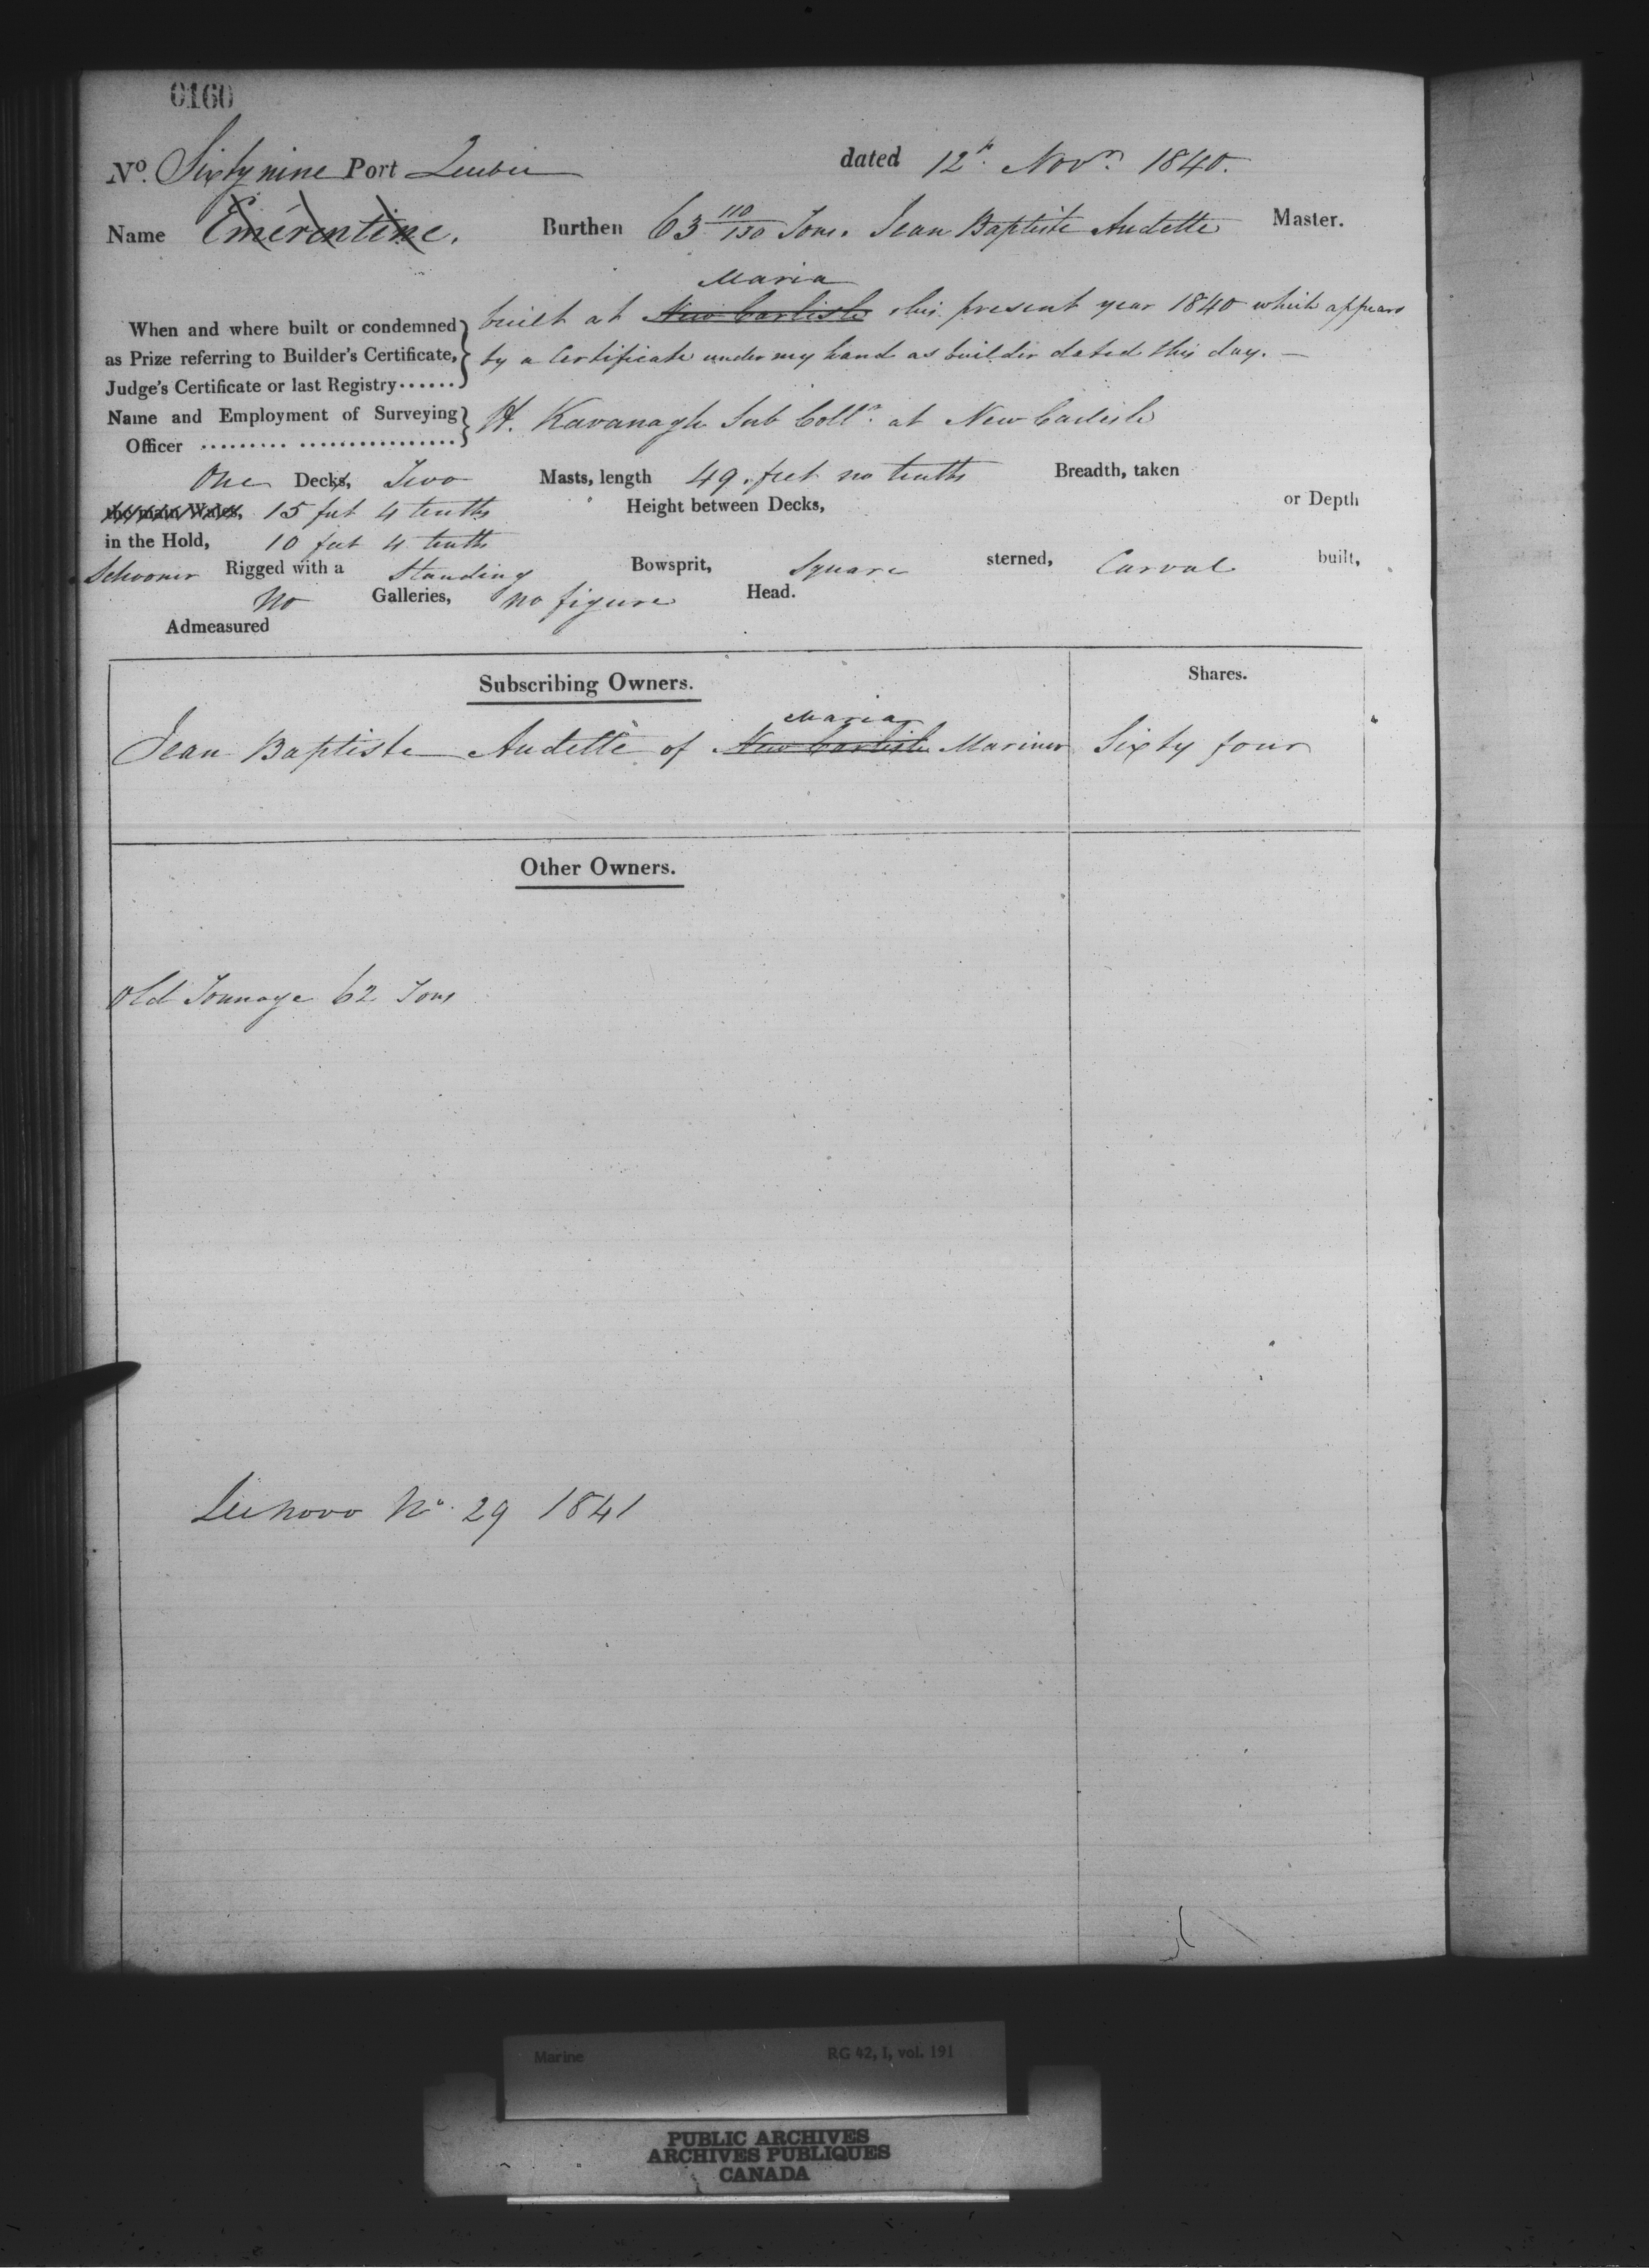 0160
No. Sixty nine Port Quebec dated 12th Novr 1840.
Name Emérentine. Burthen 63 110/130 Tons. Jean Baptiste Audette Master.
Maria
When and where built or condemned built at New Carlisle this present year 1840 which appears
as Prize referring to Builder's Certificate, by a Certificate under my hand as builder dated this day. —
Judge's Certificate or last Registry......
Name and Employment of Surveying H. Kavanagh Sub Collr. at New Carlisle
Officer ......... ................
One Decks, Two Masts, length 49. feet no tenths Breadth, taken
the main Wales, 15 feet 4 tenths Height between Decks, or Depth
in the Hold, 10 feet 4 tenths
Schooner Rigged with a Standing Bowsprit, Square sterned, Carval built,
No Galleries, no figure Head.
Admeasured
Subscribing Owners. Shares.
Maria
Jean Baptiste Audette of New Carlisle Mariner Sixty four
Other Owners.
Old Tonnage 62 Tons
De novo No. 29 1841
Marine RG 42, I, vol. 191
PUBLIC ARCHIVES
ARCHIVES PUBLIQUES
CANADA